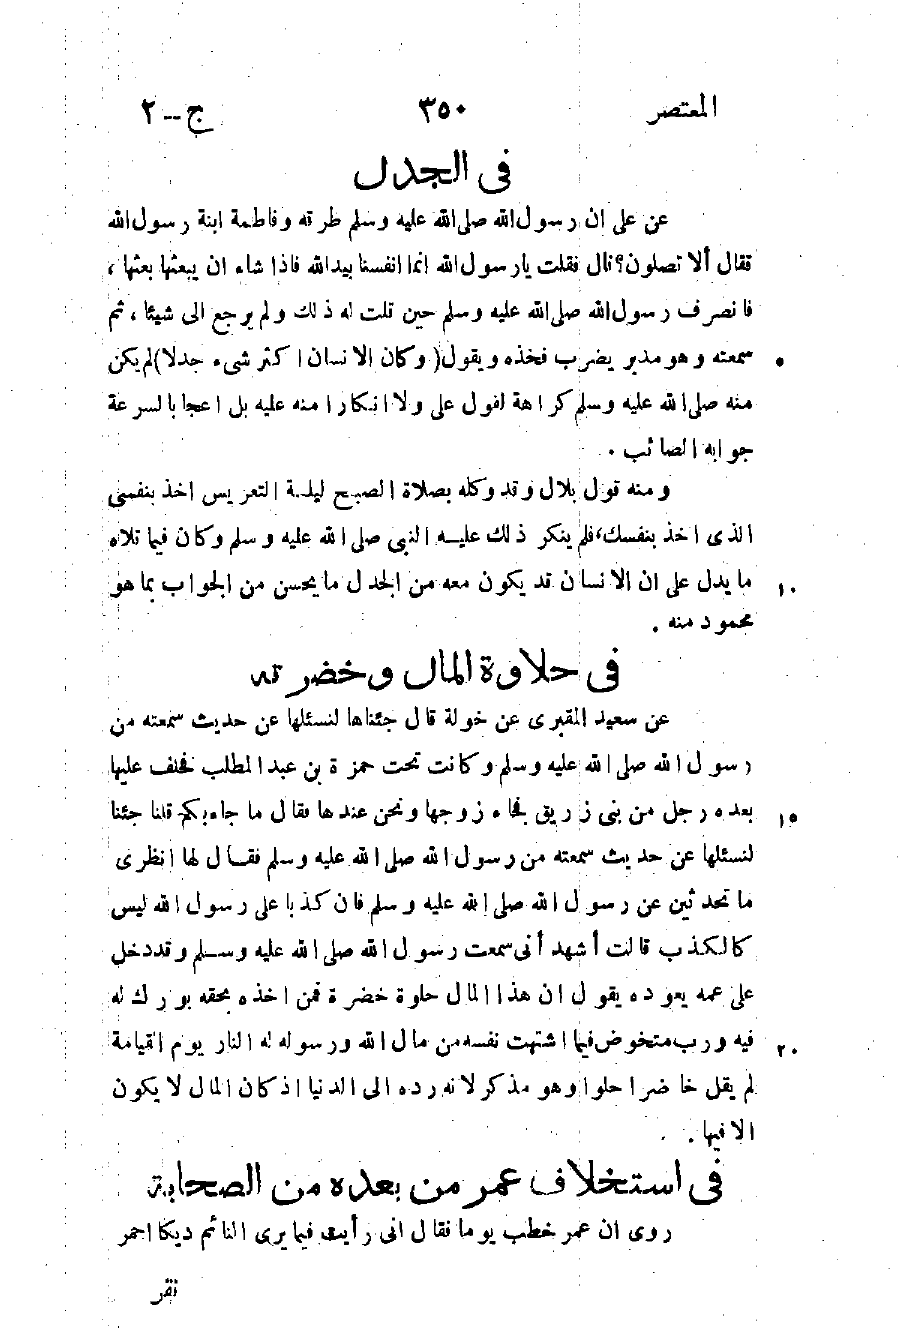 المعتصر ٣٥٠ ج--٢
فى الجدل
عن على ان رسول الله صلى الله عليه وسلم طرقه وفاطمة ابنة رسول الله
فقال ألا تصلون؟ قال فقلت يارسول الله انما انفسنا بيد الله فاذا شاء ان يبعثها بعثها ،
فانصرف رسول الله صلى الله عليه وسلم حين قلت له ذلك ولم يرجع الى شيئا ، ثم
سمعته وهو مدبر يضرب فخذه ويقول (وكان الانسان اكثر شىء جدلا) لم يكن ٥
منه صلى الله عليه وسلم كراهة لقول على ولا انكارا منه عليه بل اعجابا لسرعة
جوابه الصائب .
ومنه قول بلال وقد وكله بصلاة الصبح ليلة التعريس اخذ بنفسى
الذى اخذ بنفسك، فلم ينكر ذلك عليه النبى صلى الله عليه وسلم وكان فيما تلاه
ما يدل على ان الانسان قد يكون معه من الجدل ما يحسن من الجواب بما هو ١٠
محمود منه .
فى حلاوة المال وخضرته
عن سعيد المقبرى عن خولة قال جئناها لنسئلها عن حديث سمعته من
رسول الله صلى الله عليه وسلم وكانت تحت حمزة بن عبد المطلب فخلف عليها
بعده رجل من بنى زريق فجاء زوجها ونحن عندها فقال ما جاء بكم قلنا جئنا ١٥
لنسئلها عن حديث سمعته من رسول الله صلى الله عليه وسلم فقال لها انظرى
ما تحدثين عن رسول الله صلى الله عليه وسلم فان كذبا على رسول الله ليس
كالكذب قالت أشهد أنى سمعت رسول الله صلى الله عليه وسلم وقد دخل
على عمه يعوده يقول ان هذا المال حلوة خضرة فمن اخذه بحقه بورك له
فيه ورب متخوض فيما اشتهت نفسه من مال الله ورسوله له النار يوم القيامة ٢٠
لم يقل خاضرا حلوا وهو مذكر لانه رده الى الدنيا اذ كان المال لا يكون
الا فيها .
فى استخلاف عمر من بعده من الصحابة
روى ان عمر خطب يوما فقال انى رأيت فيما يرى النائم ديكا احمر
نقر